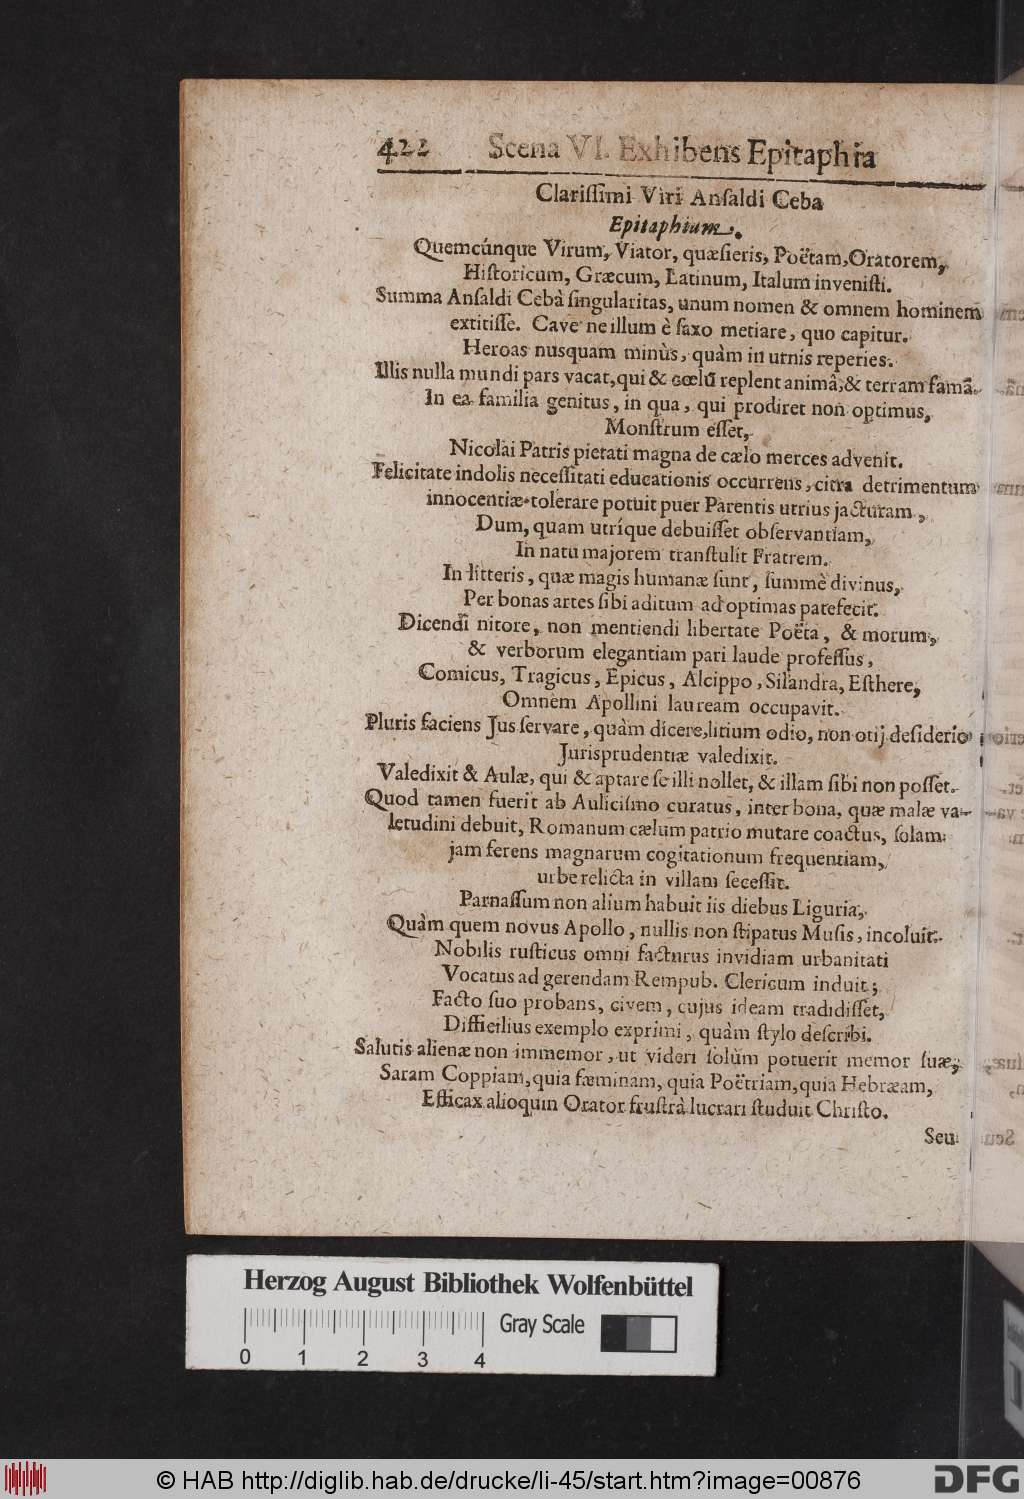 422 Scena VI. Exhibens Epitaphia
Clarissimi Viri Ansaldi Ceba
Epitaphium.
Quemcúnque Virum, Viator, quæsieris, Poëtam, Oratorem,
Historicum, Græcum, Latinum, Italum invenisti.
Summa Ansaldi Cebà singularitas, unum nomen & omnem hominem
extitisse. Cave ne illum è saxo metiare, quo capitur.
Heroas nusquam minùs, quàm in urnis reperies.
Illis nulla mundi pars vacat, qui & cœlũ replent animâ, & terram famâ.
In ea familia genitus, in qua, qui prodiret non optimus,
Monstrum esset,
Nicolai Patris pietati magna de cælo merces advenit.
Felicitate indolis necessitati educationis occurrens, citra detrimentum
innocentiæ tolerare potuit puer Parentis utrius jacturam,
Dum, quam utríque debuisset observantiam,
In natu majorem transtulit Fratrem.
In litteris, quæ magis humanæ sunt, summè divinus,
Per bonas artes sibi aditum ad optimas patefecit.
Dicendi nitore, non mentiendi libertate Poëta, & morum,
& verborum elegantiam pari laude professus,
Comicus, Tragicus, Epicus, Alcippo, Silandra, Esthere,
Omnem Apollini lauream occupavit.
Pluris faciens Jus servare, quàm dicere, litium odio, non otij desiderio
Jurisprudentiæ valedixit.
Valedixit & Aulæ, qui & aptare se illi nollet, & illam sibi non posset.
Quod tamen fuerit ab Aulicismo curatus, inter bona, quæ malæ va-
letudini debuit, Romanum cælum patrio mutare coactus, solam
jam ferens magnarum cogitationum frequentiam,
urbe relicta in villam secessit.
Parnassum non alium habuit iis diebus Liguria,
Quàm quem novus Apollo, nullis non stipatus Musis, incoluit.
Nobilis rusticus omni facturus invidiam urbanitati
Vocatus ad gerendam Rempub. Clericum induit;
Facto suo probans, civem, cujus ideam tradidisset,
Difficilius exemplo exprimi, quàm stylo describi.
Salutis alienæ non immemor, ut videri solùm potuerit memor suæ,
Saram Coppiam, quia fæminam, quia Poëtriam, quia Hebræam,
Efficax alioquin Orator frustrà lucrari studuit Christo.
Seu
Herzog August Bibliothek Wolfenbüttel
0 1 2 3 4
Gray Scale
© HAB http://diglib.hab.de/drucke/li-45/start.htm?image=00876
DFG